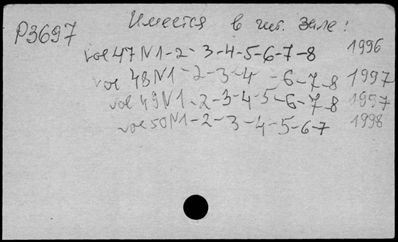 Р3697 Имеется в чит. зале!
vol 47 N1-2-3-4-5-6-7-8 1996
vol 48 N1-2-3-4 -6-7-8 1997
vol 49 N1-2-3-4-5-6-7-8 1997
vol 50 N1-2-3-4-5-6-7 1998